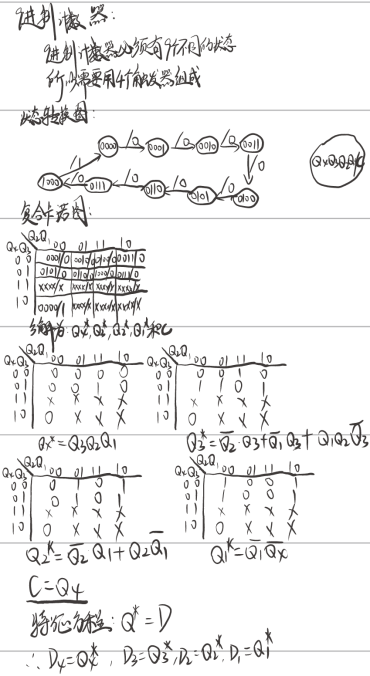 进制计数器:
进制计数器必须有9个不同的状态
所以需要用4个触发器组成
状态转换图:
0000 /0 0001 /0 0010 /0 0011
/1 /0
1000 /0 0111 /0 0110 /0 0101 /0 0100
复合卡诺图:
Q2Q1 00 01 11 10
00 0001/0 0010/0 0100/0 0011/0
01 0101/0 0110/0 1000/0 0111/0
11 xxxx/x xxxx/x xxxx/x xxxx/x
10 0000/1 xxxx/x xxxx/x xxxx/x
Q2Q1 00 01 11 10
00 0 0 0 0
01 0 0 1 0
11 x x x x
10 0 x x x
Q4* = Q3Q2Q1
Q2Q1 00 01 11 10
00 0 0 1 0
01 1 1 0 1
11 x x x x
10 0 x x x
Q3* = Q̅2·Q3+Q̅1Q3+Q1Q2Q̅3
Q2Q1 00 01 11 10
00 0 1 0 1
01 0 1 0 1
11 x x x x
10 0 x x x
Q2* = Q̅2Q1+Q2Q̅1
Q2Q1 00 01 11 10
00 1 0 0 1
01 1 0 0 1
11 x x x x
10 0 x x x
Q1* = Q̅1Q̅4
C=Q4
特征方程: Q*=D
∴ D4=Q4*, D3=Q3*, D2=Q2*, D1=Q1*